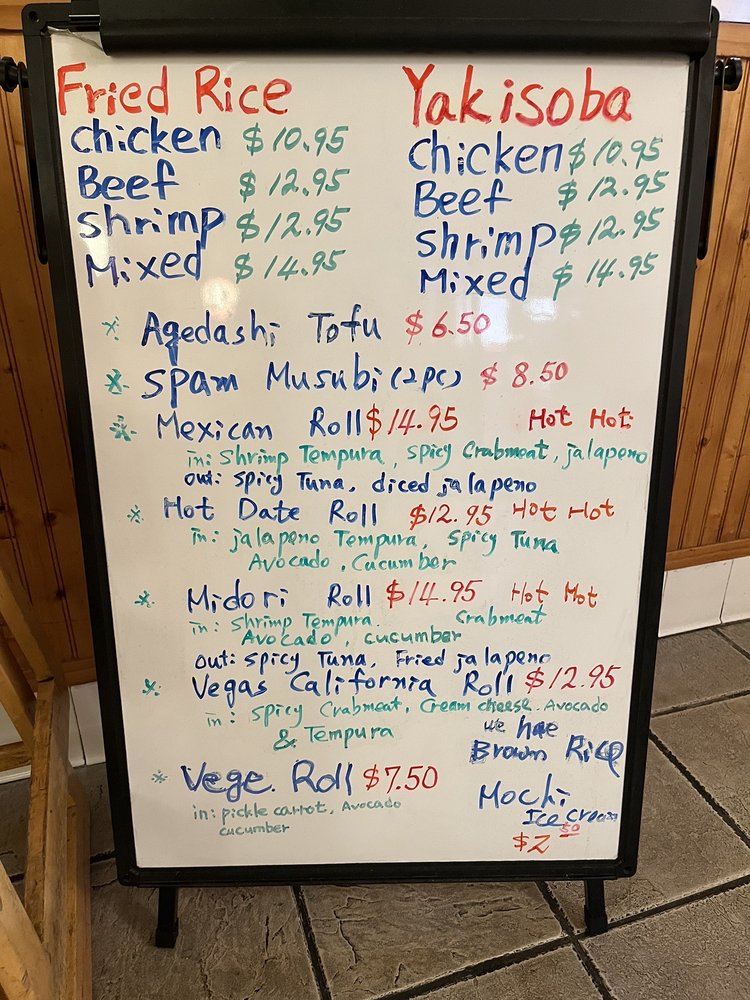 Fried Rice
chicken $10.95
Beef $12.95
shrimp $12.95
Mixed $14.95
Yakisoba
chicken $10.95
Beef $12.95
shrimp $12.95
Mixed $14.95
* Agedashi Tofu $6.50
* Spam Musubi (2pc) $8.50
* Mexican Roll $14.95 Hot Hot
in: Shrimp Tempura, spicy Crabmeat, jalapeno
out: spicy Tuna, diced jalapeno
* Hot Date Roll $12.95 Hot Hot
in: jalapeno Tempura, spicy Tuna
Avocado, Cucumber
* Midori Roll $14.95 Hot Hot
in: shrimp Tempura. Crabmeat
Avocado, cucumber
out: spicy Tuna, Fried jalapeno
* Vegas California Roll $12.95
in: spicy Crabmeat, Cream cheese. Avocado
& Tempura
we hae
Brown Rice
* Vege. Roll $7.50
in: pickle carrot, Avocado
cucumber
Mochi
Ice cream
$2 50